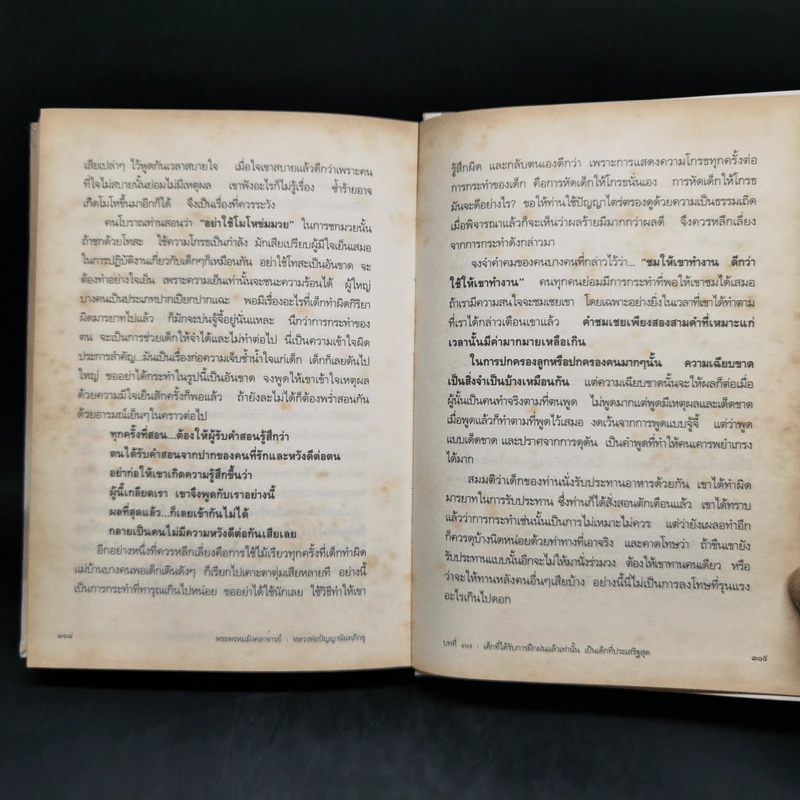 เสียเปล่าๆ ไว้พูดกันเวลาสบายใจ เมื่อใจเขาสบายแล้วดีกว่าเพราะคน
ที่ใจไม่สบายนั้นย่อมไม่มีเหตุผล เขาฟังอะไรก็ไม่รู้เรื่อง ซ้ำร้ายอาจ
เกิดโมโหขึ้นมาอีกก็ได้ จึงเป็นเรื่องที่ควรระวัง
คนโบราณท่านสอนว่า "อย่าใช้โมโหข่มมวย" ในการชกมวยนั้น
ถ้าชกด้วยโทสะ ใช้ความโกรธเป็นกำลัง มักเสียเปรียบผู้มีใจเย็นเสมอ
ในการปฏิบัติงานเกี่ยวกับเด็กๆก็เหมือนกัน อย่าใช้โทสะเป็นอันขาด จะ
ต้องทำอย่างใจเย็น เพราะความเย็นเท่านั้นจะชนะความร้อนได้ ผู้ใหญ่
บางคนเป็นประเภทปากเปียกปากแฉะ พอมีเรื่องอะไรที่เด็กทำผิดกิริยา
ผิดมารยาทไปแล้ว ก็มักจะบ่นจู้จี้อยู่นั่นแหละ นึกว่าการกระทำของ
ตน จะเป็นการช่วยเด็กให้จำได้และไม่ทำต่อไป นี่เป็นความเข้าใจผิด
ประการสำคัญ...มันเป็นเรื่องก่อความเจ็บช้ำน้ำใจแก่เด็ก เด็กก็เลยดันไป
ใหญ่ ขออย่าได้กระทำในรูปนี้เป็นอันขาด จงพูดให้เขาเข้าใจเหตุผล
ด้วยความมีใจเย็นสักครั้งก็พอแล้ว ถ้ายังละไม่ได้ก็ต้องพร่ำสอนกัน
ด้วยอารมณ์เย็นๆในคราวต่อไป
ทุกครั้งที่สอน...ต้องให้ผู้รับคำสอนรู้สึกว่า
ตนได้รับคำสอนจากปากของคนที่รักและหวังดีต่อตน
อย่าก่อให้เขาเกิดความรู้สึกขึ้นว่า
ผู้นี้เกลียดเรา เขาจึงพูดกับเราอย่างนี้
ผลที่สุดแล้ว...ก็เลยเข้ากันไม่ได้
กลายเป็นคนไม่มีความหวังดีต่อกันเสียเลย
อีกอย่างหนึ่งที่ควรหลีกเลี่ยงคือการใช้ไม้เรียวทุกครั้งที่เด็กทำผิด
แม่บ้านบางคนพอเด็กเดินดังๆ ก็เรียกไปเคาะตาตุ่มเสียหลายที อย่างนี้
เป็นการกระทำที่ทารุณเกินไปหน่อย ขออย่าได้ใช้นักเลย ใช้วิธีทำให้เขา
๓๑๘ พระพรหมมังคลาจารย์ : หลวงพ่อปัญญานันทภิกขุ
รู้สึกผิด และกลับตนเองดีกว่า เพราะการแสดงความโกรธทุกครั้งต่อ
การกระทำของเด็ก คือการหัดเด็กให้โกรธนั่นเอง การหัดเด็กให้โกรธ
มันจะดีอย่างไร? ขอให้ท่านใช้ปัญญาไตร่ตรองดูด้วยความเป็นธรรมเถิด
เมื่อพิจารณาแล้วก็จะเห็นว่าผลร้ายมีมากกว่าผลดี จึงควรหลีกเลี่ยง
จากการกระทำดังกล่าวมา
จงจำคำคมของคนบางคนที่กล่าวไว้ว่า... "ชมให้เขาทำงาน ดีกว่า
ใช้ให้เขาทำงาน" คนทุกคนย่อมมีการกระทำที่พอให้เขาชมได้เสมอ
ถ้าเรามีความสนใจจะชมเชยเขา โดยเฉพาะอย่างยิ่งในเวลาที่เขาได้ทำตาม
ที่เราได้กล่าวเตือนเขาแล้ว คำชมเชยเพียงสองสามคำที่เหมาะแก่
เวลานั้นมีค่ามากมายเหลือเกิน
ในการปกครองลูกหรือปกครองคนมากๆนั้น ความเฉียบขาด
เป็นสิ่งจำเป็นบ้างเหมือนกัน แต่ความเฉียบขาดนั้นจะให้ผลก็ต่อเมื่อ
ผู้นั้นเป็นคนทำจริงตามที่ตนพูด ไม่พูดมากแต่พูดมีเหตุผลและเด็ดขาด
เมื่อพูดแล้วก็ทำตามที่พูดไว้เสมอ งดเว้นจากการพูดแบบจู้จี้ แต่ว่าพูด
แบบเด็ดขาด และปราศจากการดุดัน เป็นคำพูดที่ทำให้คนเคารพยำเกรง
ได้มาก
สมมติว่าเด็กของท่านนั่งรับประทานอาหารด้วยกัน เขาได้ทำผิด
มารยาทในการรับประทาน ซึ่งท่านก็ได้สั่งสอนตักเตือนแล้ว เขาได้ทราบ
แล้วว่าการกระทำเช่นนั้นเป็นการไม่เหมาะไม่ควร แต่ว่ายังเผลอทำอีก
ก็ควรดุบ้างนิดหน่อยด้วยท่าทางที่เอาจริง และคาดโทษว่า ถ้าขืนเขายัง
รับประทานแบบนั้นอีกจะไม่ให้มานั่งร่วมวง ต้องให้เขาทานคนเดียว หรือ
ว่าจะให้ทานหลังคนอื่นๆเสียบ้าง อย่างนี้นี่ไม่เป็นการลงโทษที่รุนแรง
อะไรเกินไปดอก
บทที่ ๓๗ : เด็กที่ได้รับการฝึกฝนแล้วเท่านั้น เป็นเด็กที่ประเสริฐสุด ๓๑๙